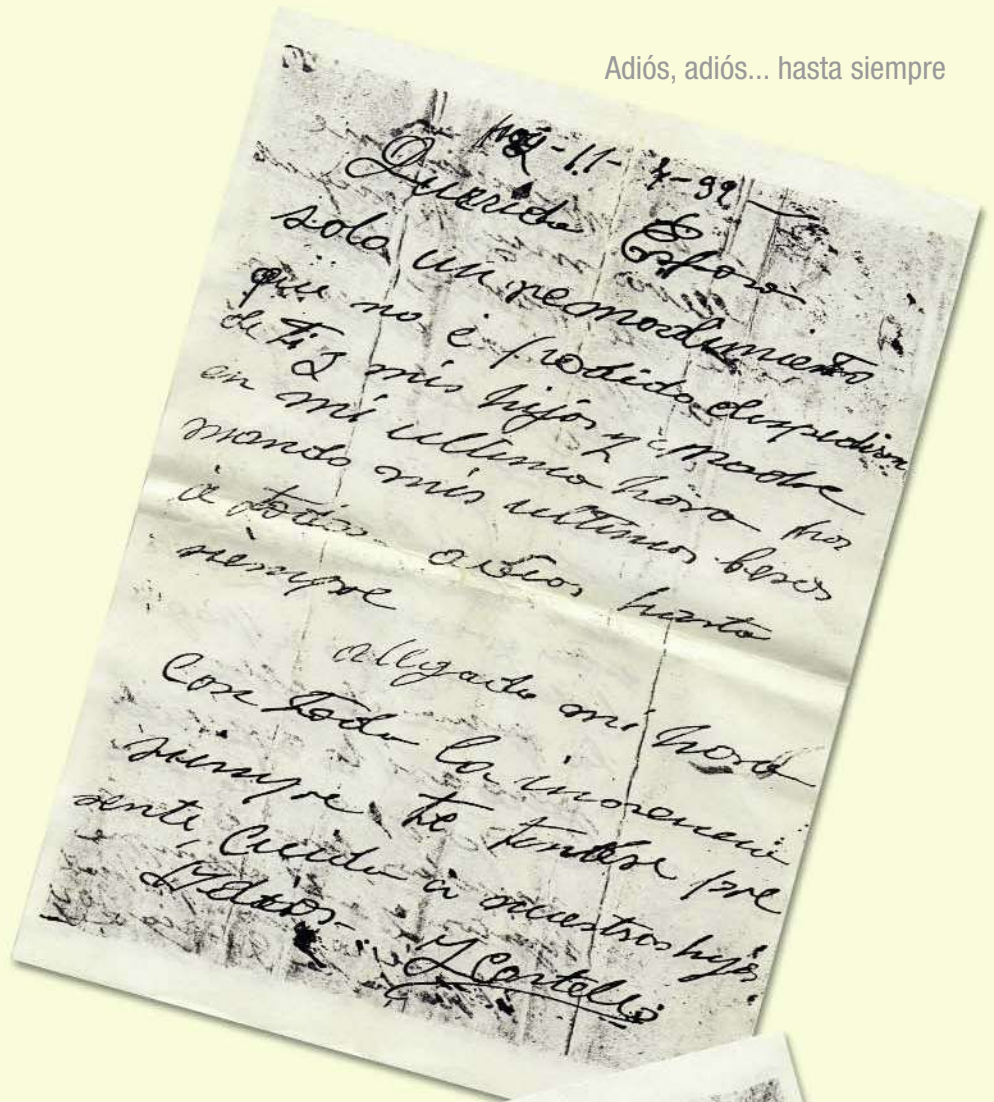 Adiós, adiós... hasta siempre
hoy-11-
Querida Esposa
solo un remordimiento
que no é podido despedirm
de ti y mis hijos y madre
en mi ultima hora pos
mando mis ultimos besos
a todos adios hasta
siempre
allegado mi hora
Con toda la inocencia
siempre te tendre pre
sente, Cuida a nuestros hijos
Adios